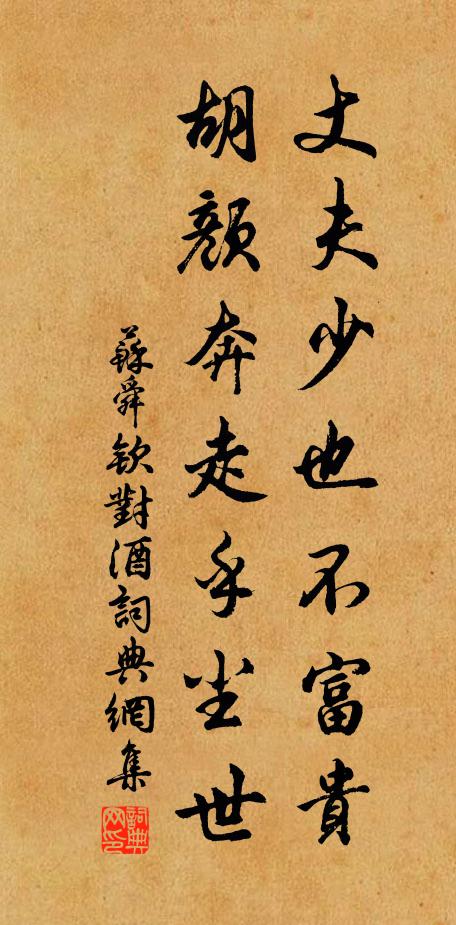 丈夫少也不富貴
胡顔奔走乎尘世
蘇舜欽對酒詞典網集
詞典网印